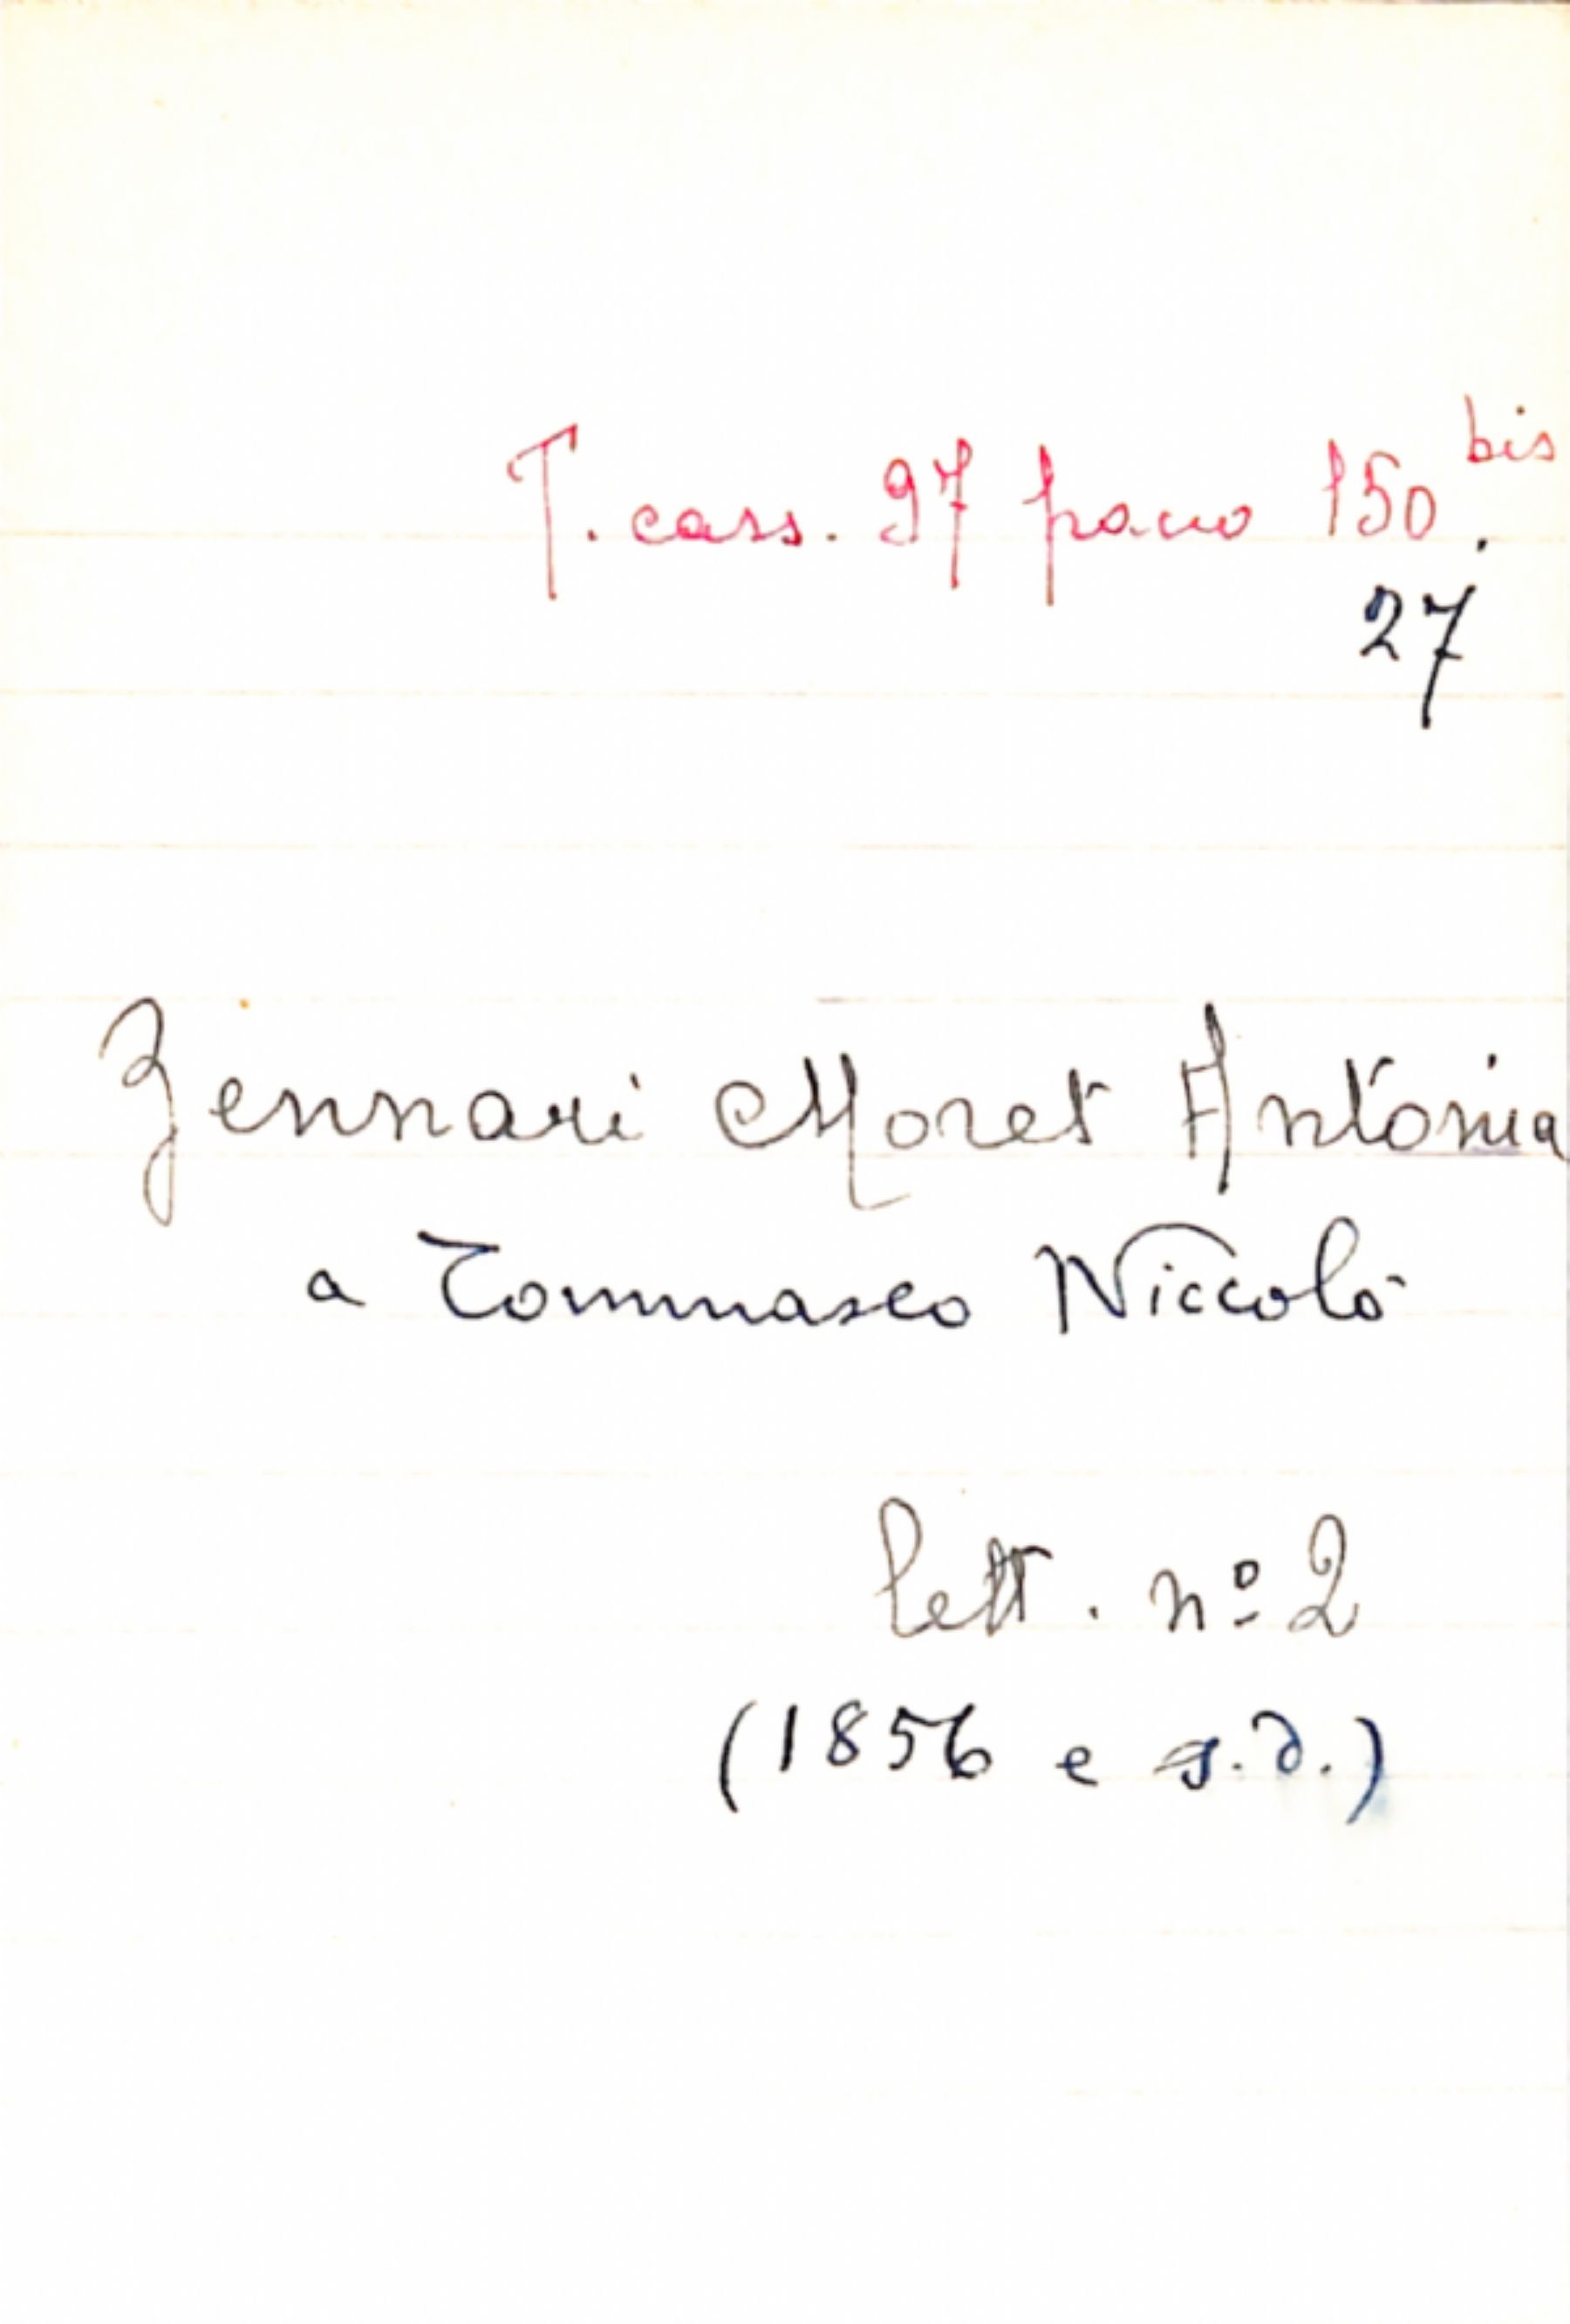 T. cass. 97 pacco 150 bis.
27
Zennari Moret Antonia
a Tommaseo Niccolò
lett. nº 2
(1856 e s.d.)